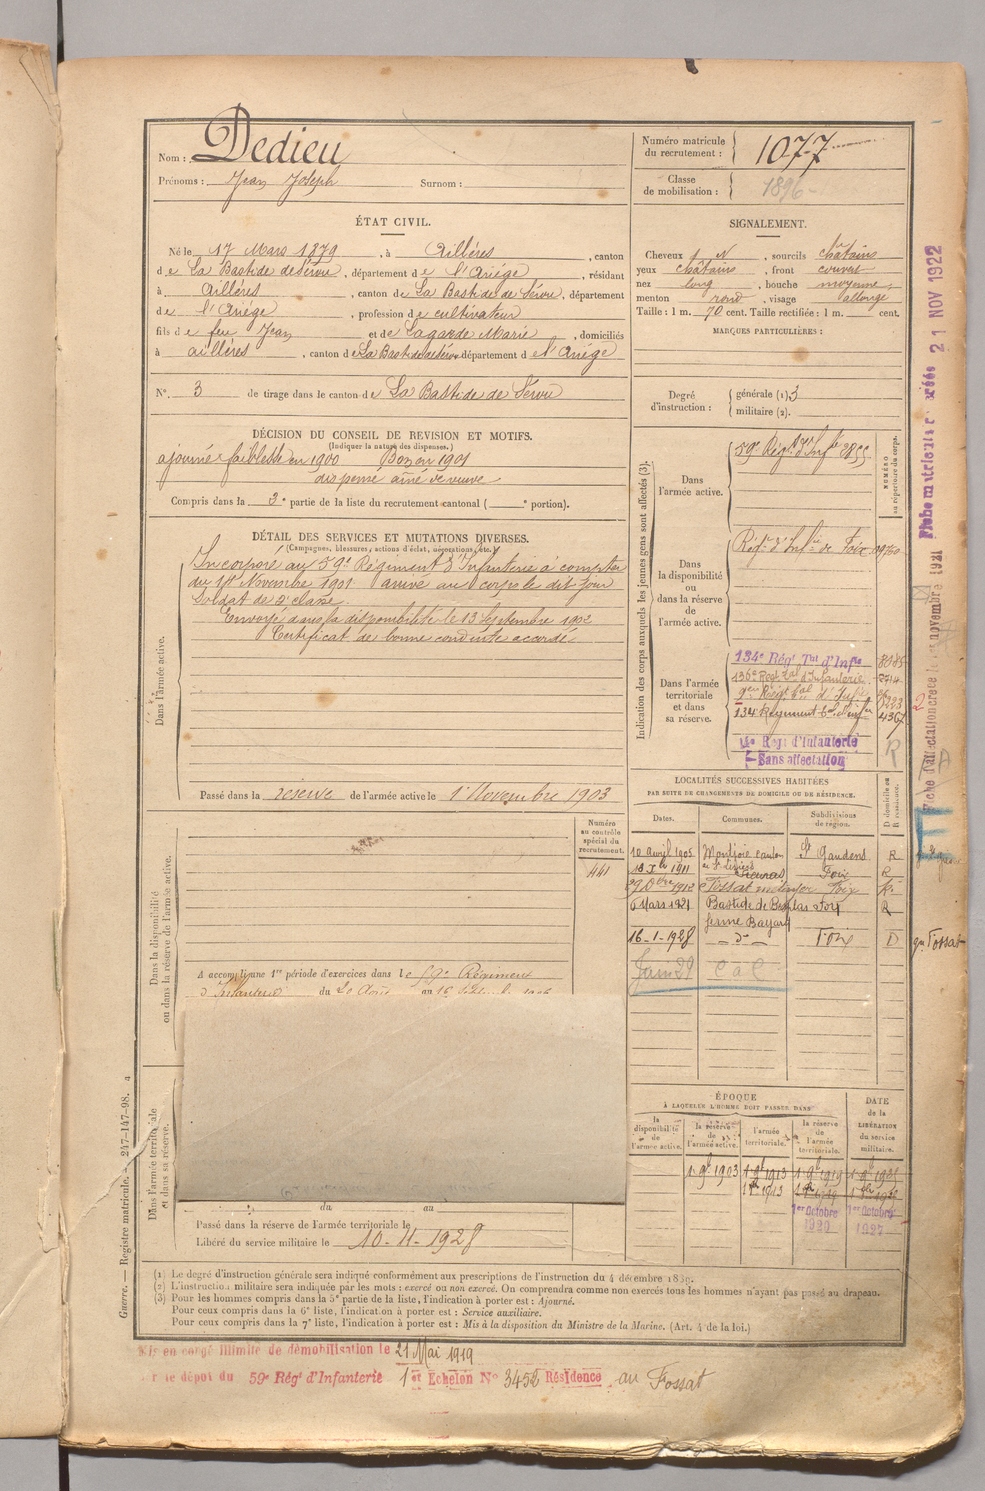 Nom : Dedieu
Prénoms : Jean Joseph Surnom :
Numéro matricule du recrutement : 1077
Classe de mobilisation : 1896
ÉTAT CIVIL.
Né le 17 Mars 1879, à Aillères, canton
de La Bastide de Sérou, département de l'Ariège, résidant
à Aillères, canton de La Bastide de Sérou, département
de l'Ariège, profession de cultivateur
fils de feu Jean et de Lagarde Marie, domiciliés
à aillères, canton de La Bastide de Sérou département de l'Ariège
N° 3 de tirage dans le canton de La Bastide de Sérou
SIGNALEMENT.
Cheveux N, sourcils châtains
yeux châtains, front couvert
nez long, bouche moyenne,
menton rond, visage allongé
Taille : 1 m. 70 cent. Taille rectifiée : 1 m. cent.
MARQUES PARTICULIÈRES :
Degré d'instruction : générale (1) 3
militaire (2).
DÉCISION DU CONSEIL DE REVISION ET MOTIFS.
(Indiquer la nature des dispenses.)
ajourné faiblesse en 1900 Bon en 1901
dispensé aîné de veuve
Compris dans la 3e partie de la liste du recrutement cantonal ( e portion).
DÉTAIL DES SERVICES ET MUTATIONS DIVERSES.
(Campagnes, blessures, actions d'éclat, décorations, etc.)
Dans l'armée active.
Incorporé au 59e Régiment d'Infanterie à compter
du 14 Novembre 1901 arrivé au corps le dit jour
Soldat de 2e classe.
Envoyé dans la disponibilité le 13 Septembre 1902
Certificat de bonne conduite accordé
Passé dans la réserve de l'armée active le 1 Novembre 1903
Indication des corps auxquels les jeunes gens sont affectés (3).
NUMÉRO au répertoire du corps.
Dans l'armée active.
59e Régt d'Infie 3855
Dans la disponibilité ou dans la réserve de l'armée active.
Regt d'Infie de Foix
Dans l'armée territoriale et dans sa réserve.
134e Régt Tal d'Infie
136e Regt Tal d'Infanterie
134 Regiment
Regt d'Infanterie
Sans affectation
R
LOCALITÉS SUCCESSIVES HABITÉES
PAR SUITE DE CHANGEMENTS DE DOMICILE OU DE RÉSIDENCE.
Dates. Communes. Subdivisions de région. D domicile ou R résidence.
10 avril 1905 Montjoie canton St Gaudens R
1911 Foix R
1912 Fossat Foix R
6 Mars 1921 Bastide de Besplas Foix R
ferme Bayard
16-1-1928 do Foix D
Juin 29
Fossat
Dans la disponibilité ou dans la réserve de l'armée active.
Numéro au contrôle spécial du recrutement.
441
A accompli une 1re période d'exercices dans le 59e Régiment
d'Infanterie du 20 Août au
Dans l'armée territoriale et dans sa réserve.
du au
Passé dans la réserve de l'armée territoriale le
Libéré du service militaire le 10-11-1928
ÉPOQUE
À LAQUELLE L'HOMME DOIT PASSER DANS
la disponibilité de l'armée active.
la réserve de l'armée active.
l'armée territoriale.
la réserve de l'armée territoriale.
DATE de la LIBÉRATION du service militaire.
1er Octobre 1920
1er Octobre 1927
(1) Le degré d'instruction générale sera indiqué conformément aux prescriptions de l'instruction du 4 décembre 1889.
(2) L'instruction militaire sera indiquée par les mots : exercé ou non exercé. On comprendra comme non exercés tous les hommes n'ayant pas passé au drapeau.
(3) Pour les hommes compris dans la 5e partie de la liste, l'indication à porter est : Ajourné.
Pour ceux compris dans la 6e liste, l'indication à porter est : Service auxiliaire.
Pour ceux compris dans la 7e liste, l'indication à porter est : Mis à la disposition du Ministre de la Marine. (Art. 4 de la loi.)
Guerre. — Registre matricule. 247-147-98.
Mis en congé illimité de démobilisation le 21 Mai 1919
le dépôt du 59e Régt d'Infanterie 1er Echelon N° 3452 Résidence au Fossat
21 NOV 1922